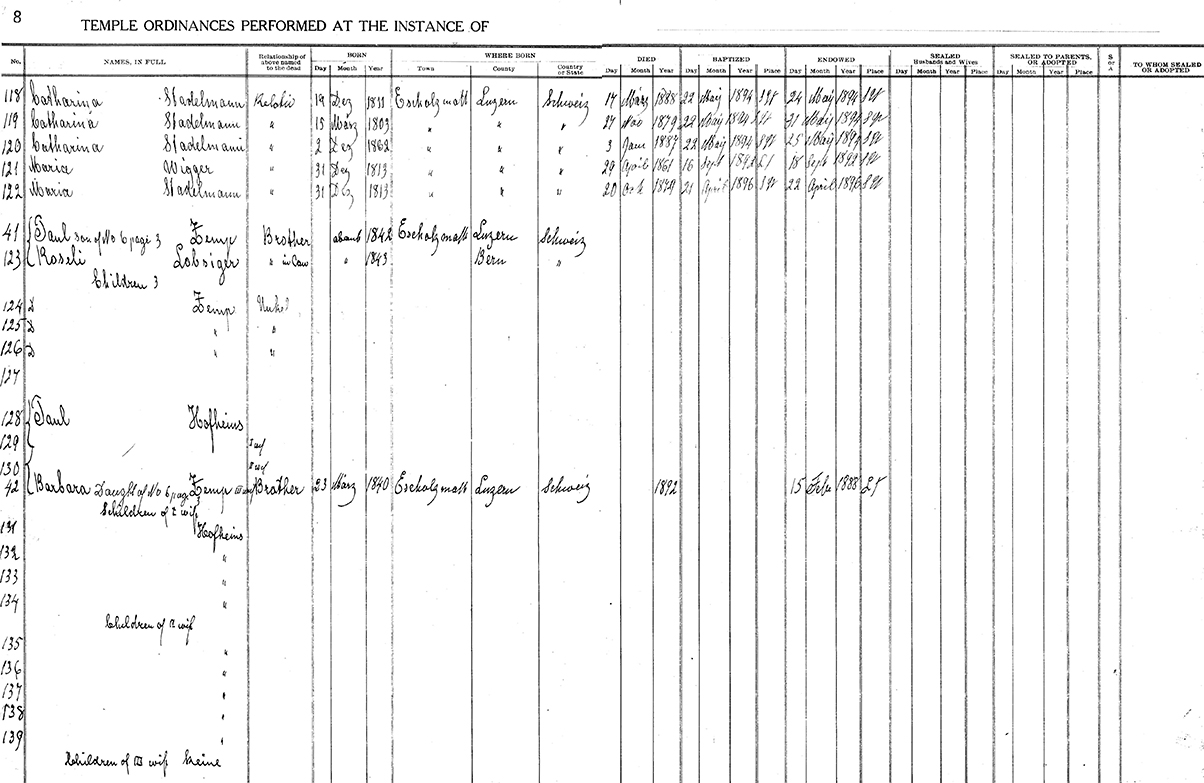 8
TEMPLE ORDINANCES PERFORMED AT THE INSTANCE OF
No. NAMES, IN FULL Relationship of above named to the dead BORN WHERE BORN DIED BAPTIZED ENDOWED SEALED Husbands and Wives SEALED TO PARENTS, OR ADOPTED S or A TO WHOM SEALED OR ADOPTED
Day Month Year Town County Country or State Day Month Year Day Month Year Place Day Month Year Place Day Month Year Place Day Month Year Place
118 Catharina Stadelmann 19 Dez 1811 Escholzmatt Luzern Schweiz 17 März 1888 22 Maij 1894 24 Maij 1894
119 Catharina Stadelmann " 15 März 1803 " " " 27 Nov 1879 22 Maij 1894 21 Maij 1894
120 Catharina Stadelmann " 2 Dez 1862 " " " 3 Janu 1887 22 Maij 1894 25 Maij 1894
121 Maria Wigger " 31 Dez 1813 " " " 29 April 1861 16 Sept 18 Sept
122 Maria Stadelmann " 31 Dez 1813 " " " 20 Oct 1879 21 April 1896 22 April 1896
41 Paul son of No 6 page 3 Zemp Brother about 1842 Escholzmatt Luzern Schweiz
123 Roseli Lobsiger " in law " 1843 Bern "
Children 3
124 D Zemp Unkel
125 D " "
126 D " "
127
128 Paul Hofheins
129
130
42 Barbara Daught of No 6 page 3 Zemp Brother 23 März 1840 Escholzmatt Luzern Schweiz 1892 15 Febr 1888
children of wif
131 Hofheins
132 "
133 "
134 "
Children of wif
135 "
136 "
137 "
138 "
139 "
Children of III wif keine